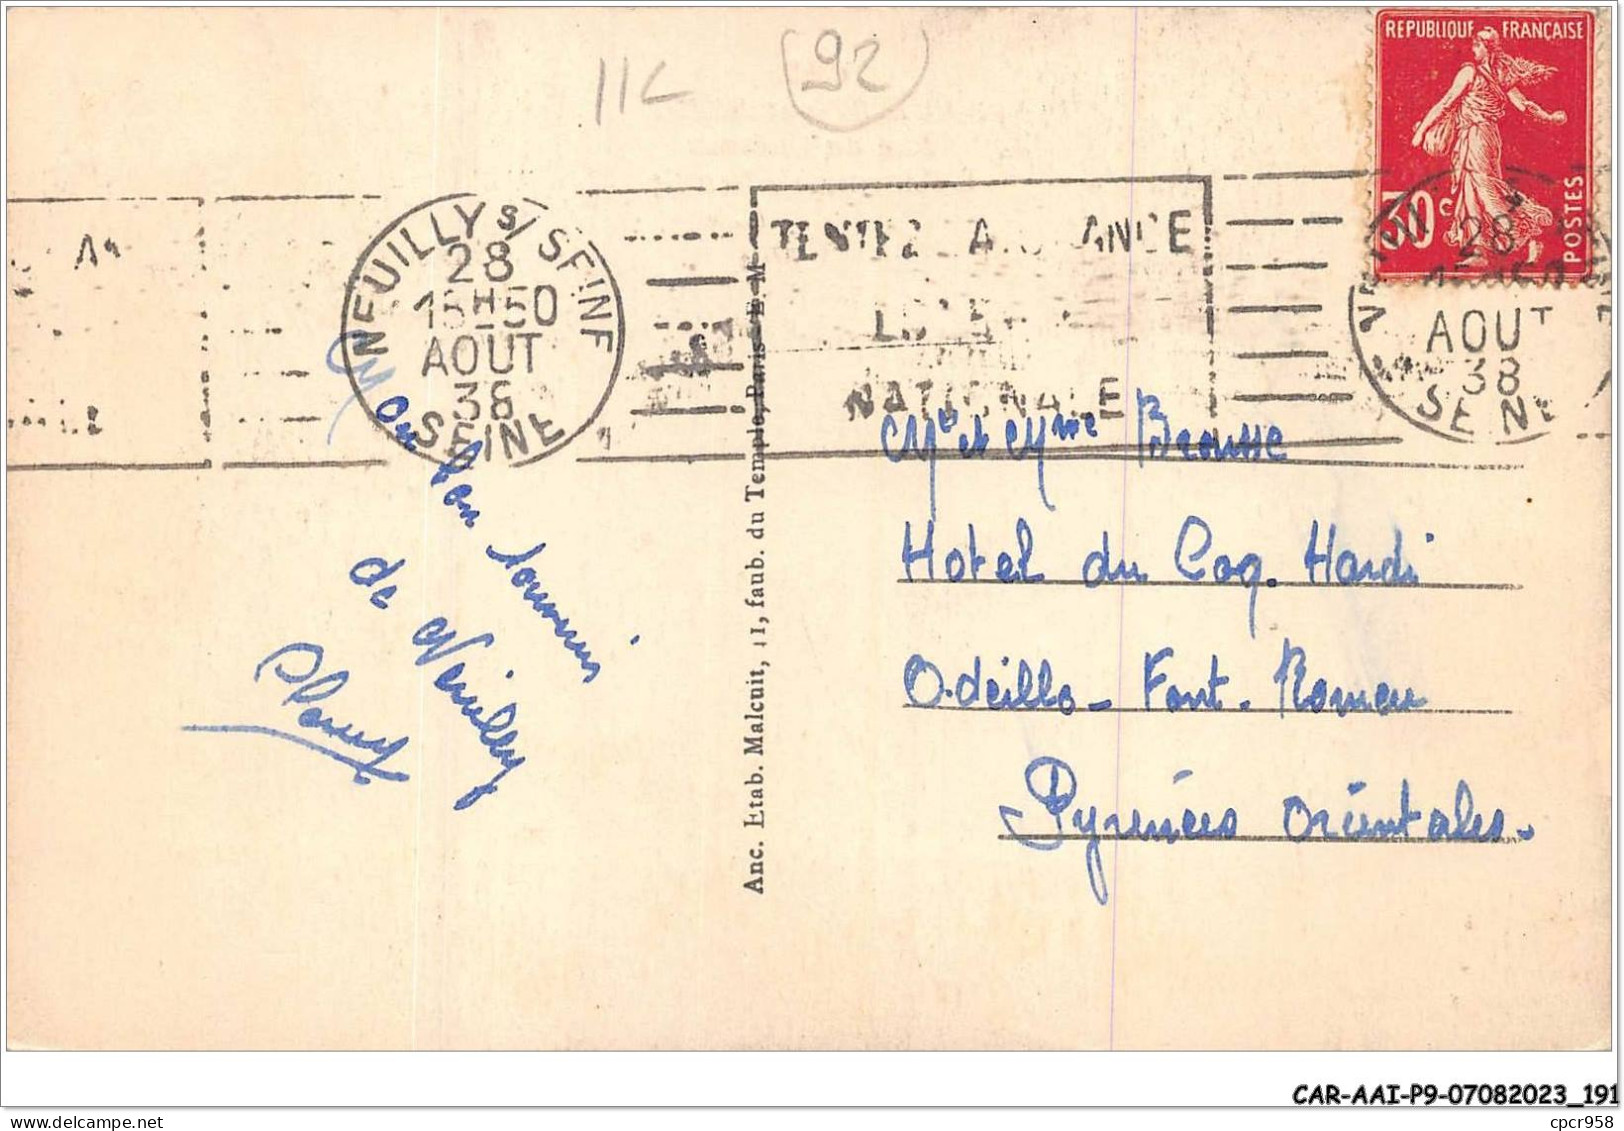 11c
92
REPUBLIQUE FRANÇAISE
30c
POSTES
NEUILLY S/ SEINE
28
15H50
AOUT
38
SEINE
TENTEZ CHANCE
LOTERIE
NATIONALE
28
AOUT
38
SEINE
Mon bon souvenir
de Neuilly
Anc. Etab. Malcuit, 11, faub. du Temple, Paris E M
Mr et Mme Brousse
Hotel du Coq. Hardi
Odeillo - Font - Romeu
Pyrénées Orientales.
CAR-AAI-P9-07082023_191
cpcr958